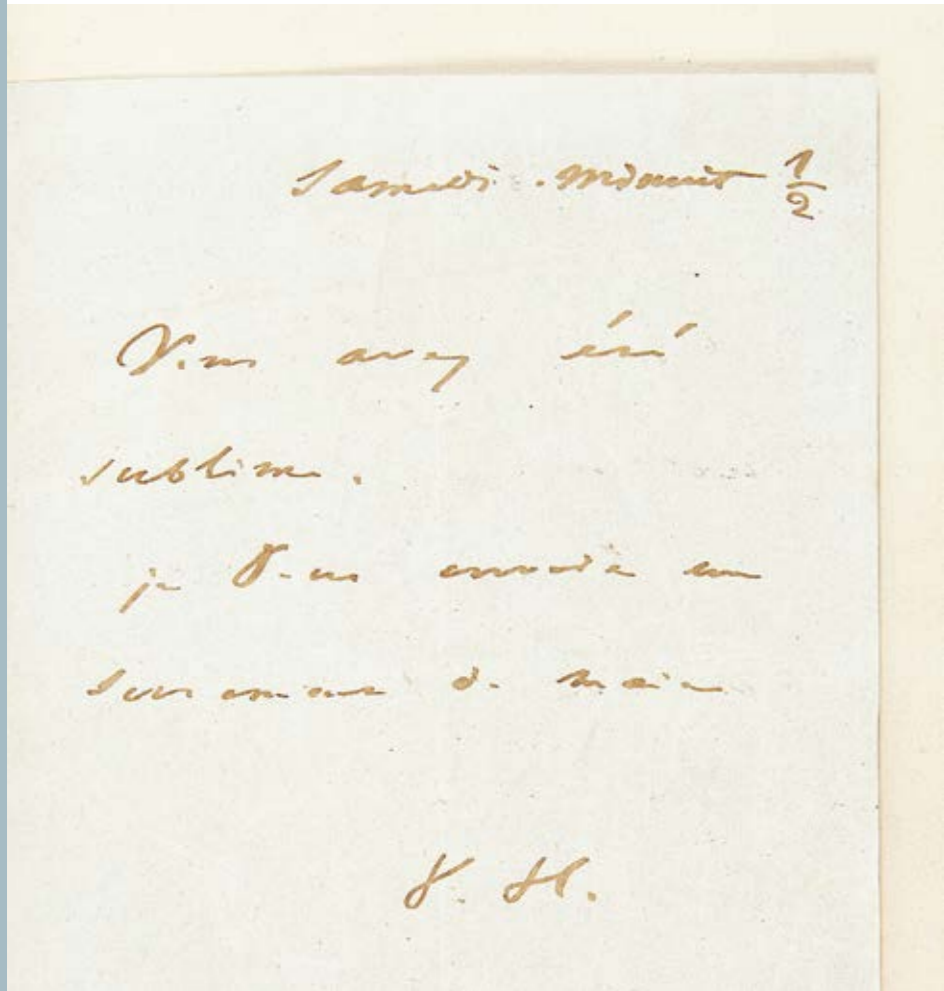 Samedi. Minuit 1/2
Vous avez été
sublime.
je vous envoie un
serrement de main
V. H.